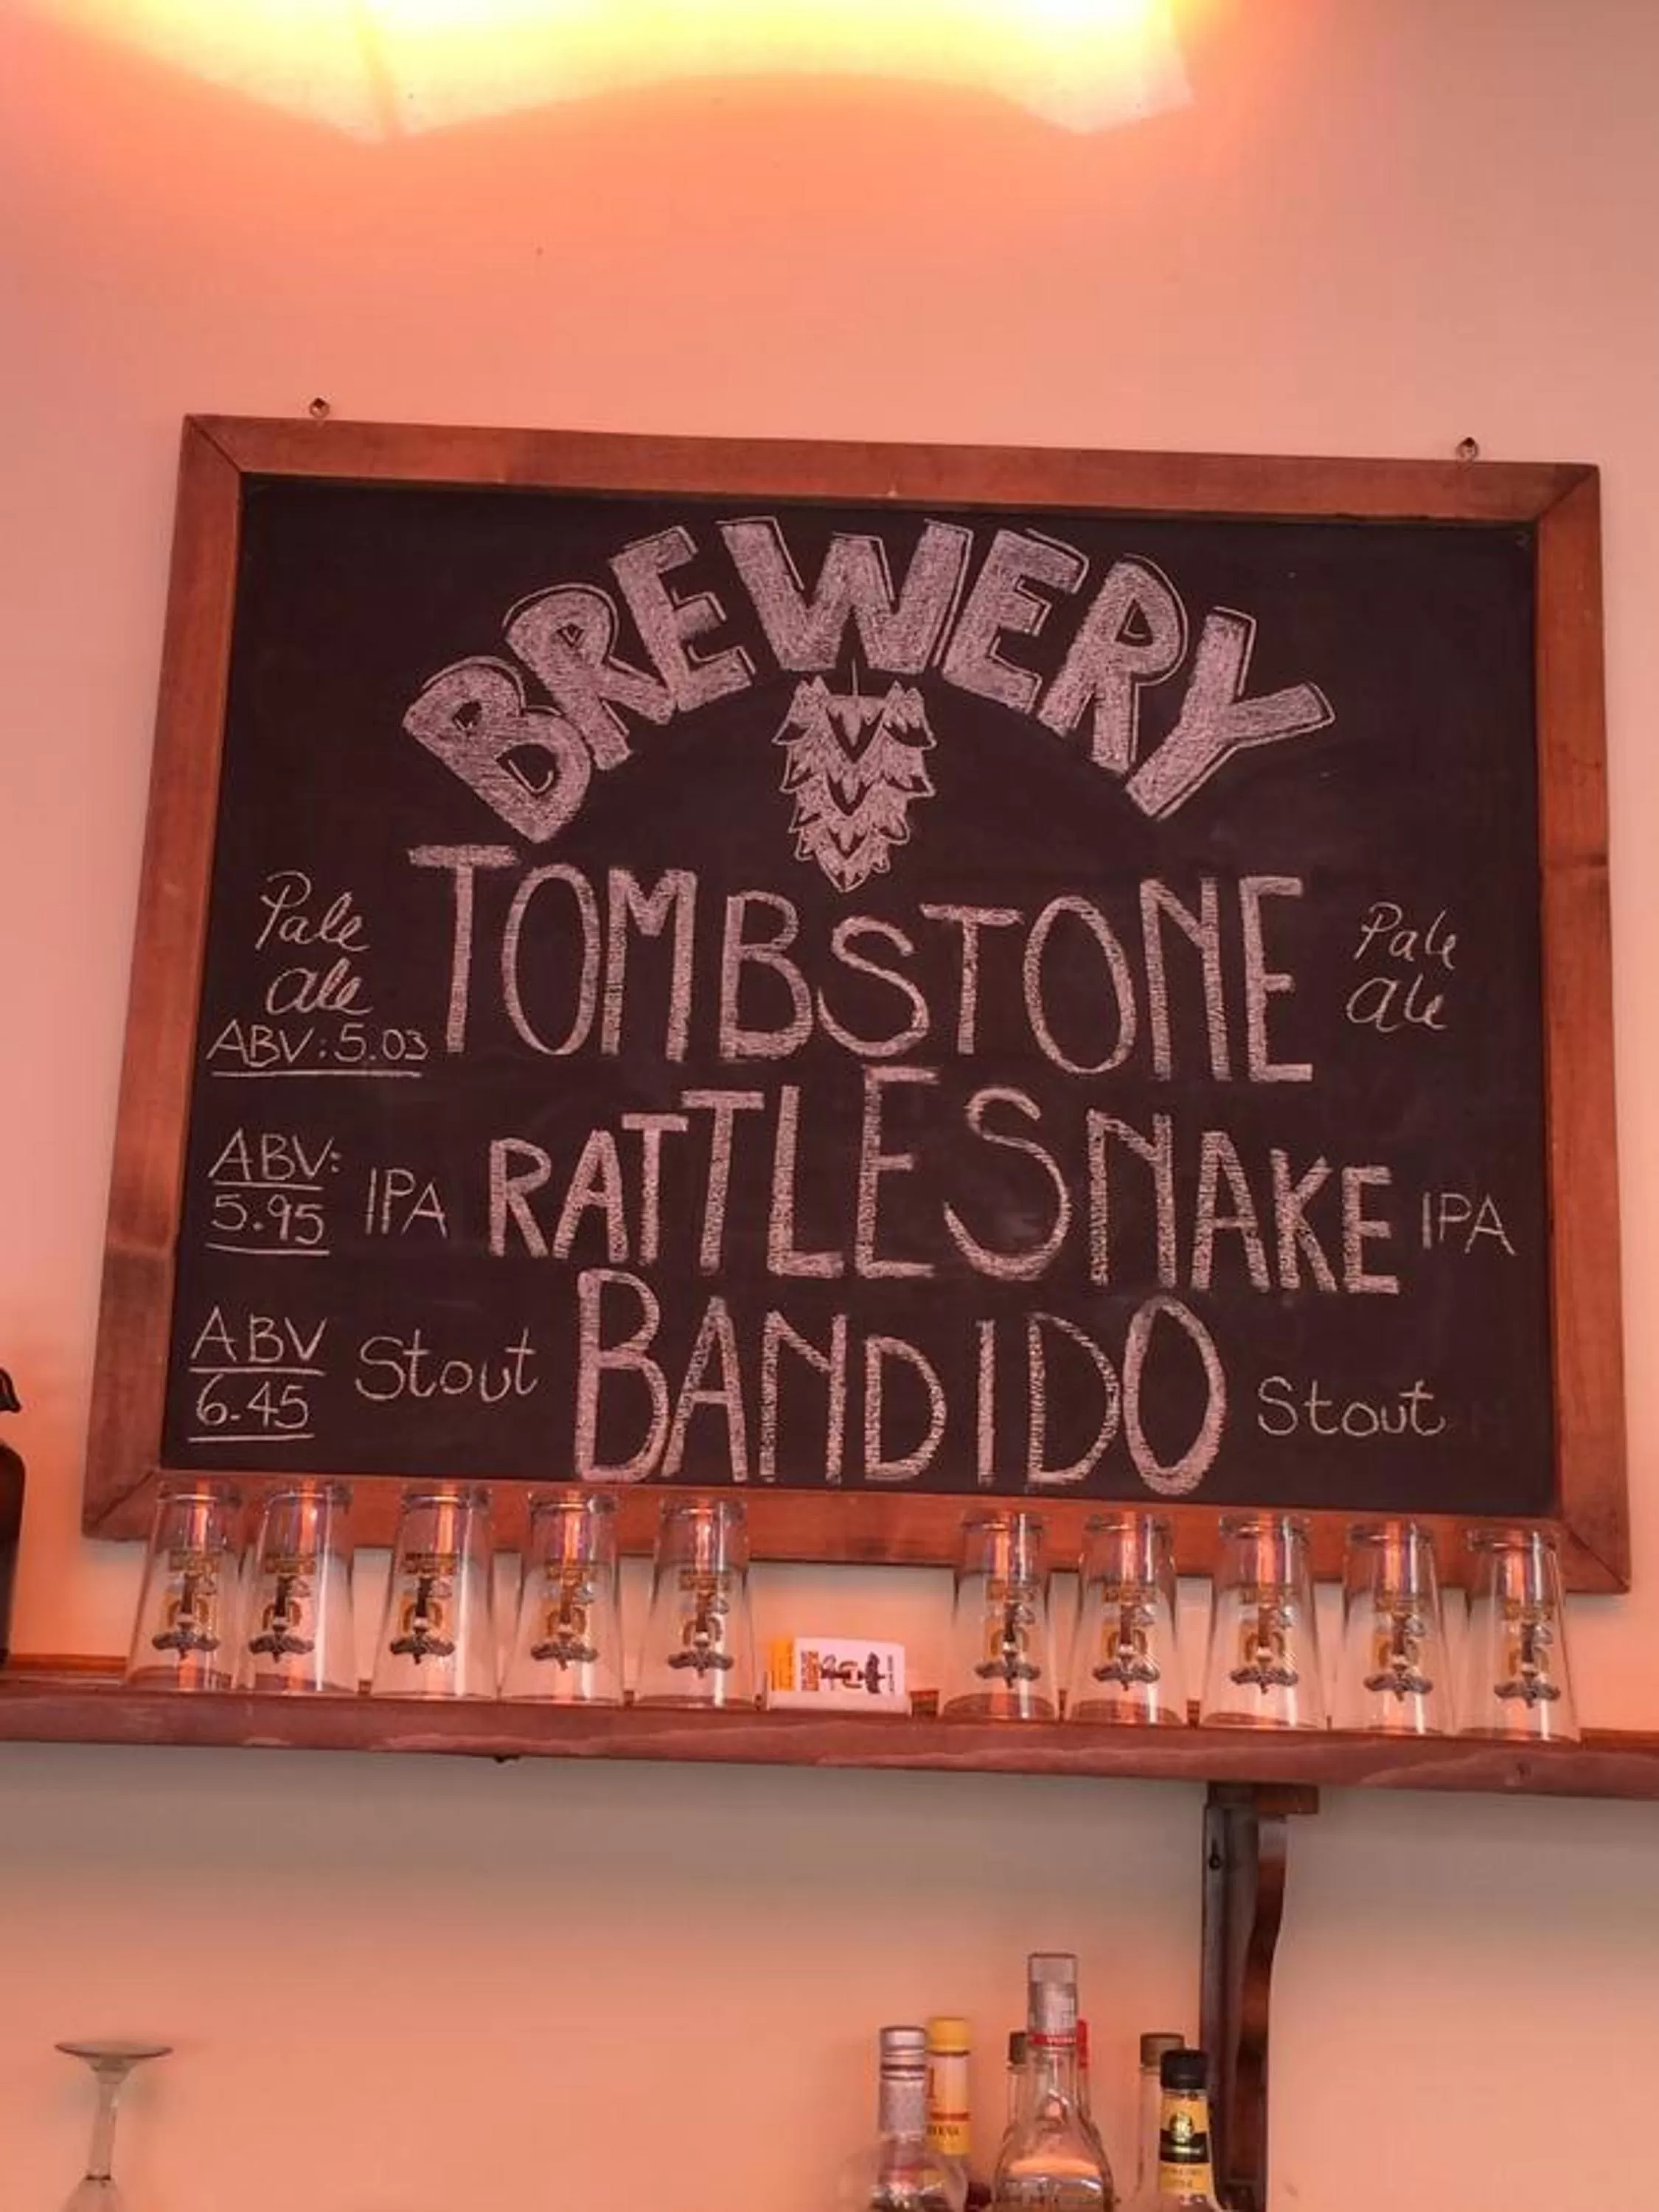 BREWERY
Pale ale TOMBSTONE Pale ale
ABV: 5.03
ABV: 5.95 IPA RATTLESNAKE IPA
ABV 6.45 Stout BANDIDO Stout